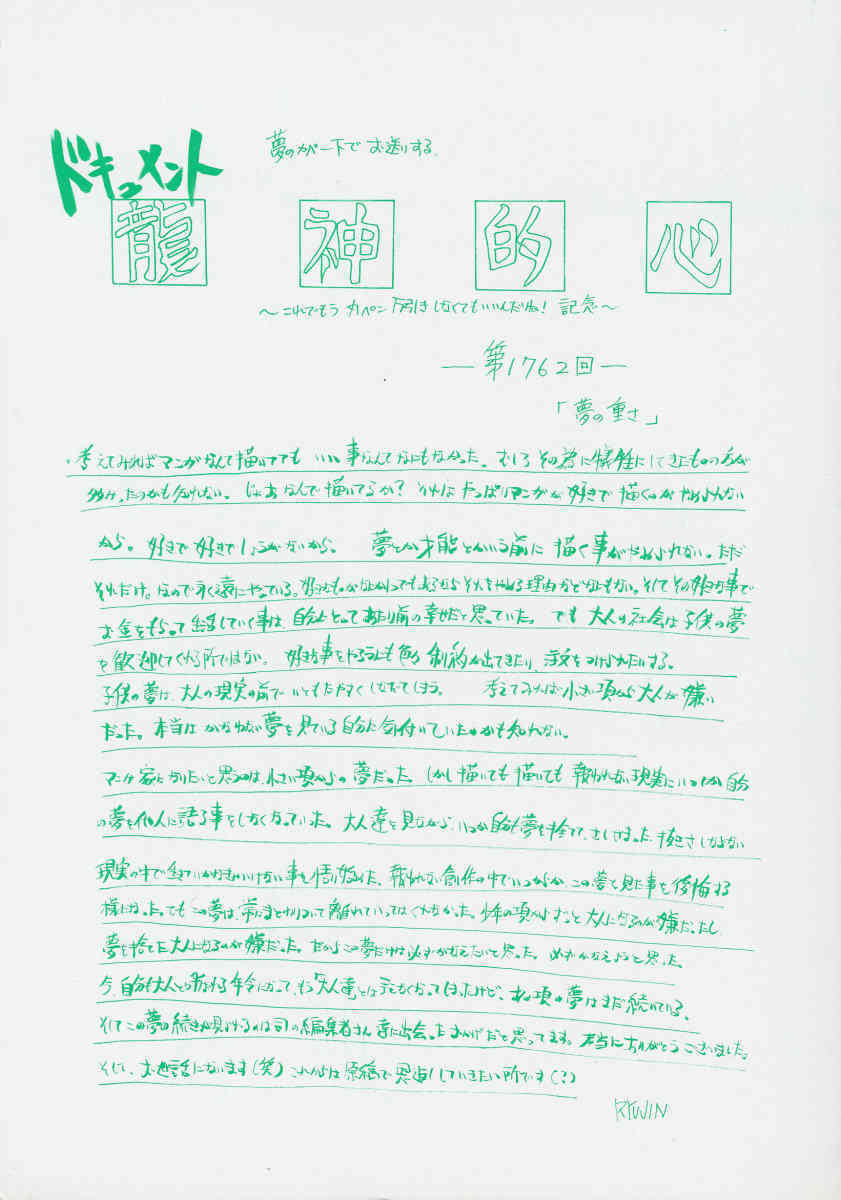 ドキュメント
夢のカバー下でお送りする
龍神的心
～これでもうカバン下引きしなくてもいいんだね！記念～
―第1762回―
「夢の重さ」
・考えてみればマンガなんて描いてても いい事なんてなにもなかった。むしろその為に犠牲にしてきたものの方が
多かったのかも知れない。じゃあなんで描いてるか？それはやっぱりマンガが好きで描くのがやめられない
から。好きで好きでしょうがないから。 夢とか才能とかいう前に描く事がやめられない。ただ
それだけ。なので永遠にやっている。それをやめる理由などなにもない。そしてその好きな事で
お金をもらって生活していく事は、自分にとってあたり前の幸せだと思っていた。でも大人の社会は子供の夢
を歓迎してくれる所ではない。好きな事をやるにも色々制約が出てきたり、注文をつけられたりする。
子供の夢は、大人の現実の前でいともたやすくしおれてしまう。 考えてみれば小さい頃から大人が嫌い
だった。本当はかなわない夢を見ている自分に気付いていたのかも知れない。
マンガ家になりたいと思うのは、小さい頃からの夢だった。しかし描いても描いても報われない現実にいつしか自分
の夢を他人に語る事をしなくなっていた。大人達を見ながら、いつか自分も夢を捨て、
現実の中で生きていかなきゃいけない事を悟り始めた。報われない創作の中でいつからか、この夢を見た事を後悔する
様になった。でもこの夢は、常にまとわりついて離れていってはくれなかった。少年の頃からずっと大人になるのが嫌だったし
夢を捨てた大人になるのが嫌だった。だからこの夢だけは必ずかなえたいと思った。必ずかなえようと思った。
今、自分も大人と呼ばれる年令になって、もう大人達とは言えなくなってしまったけど、あの頃の夢はまだ続いている。
そしてこの夢の続きが見れるのは司の編集者さん達に出会ったおかげだと思ってます。本当にありがとうございました。
そして、お世話になります(笑) これからは原稿で恩返ししていきたい所です(？)
RYUJIN